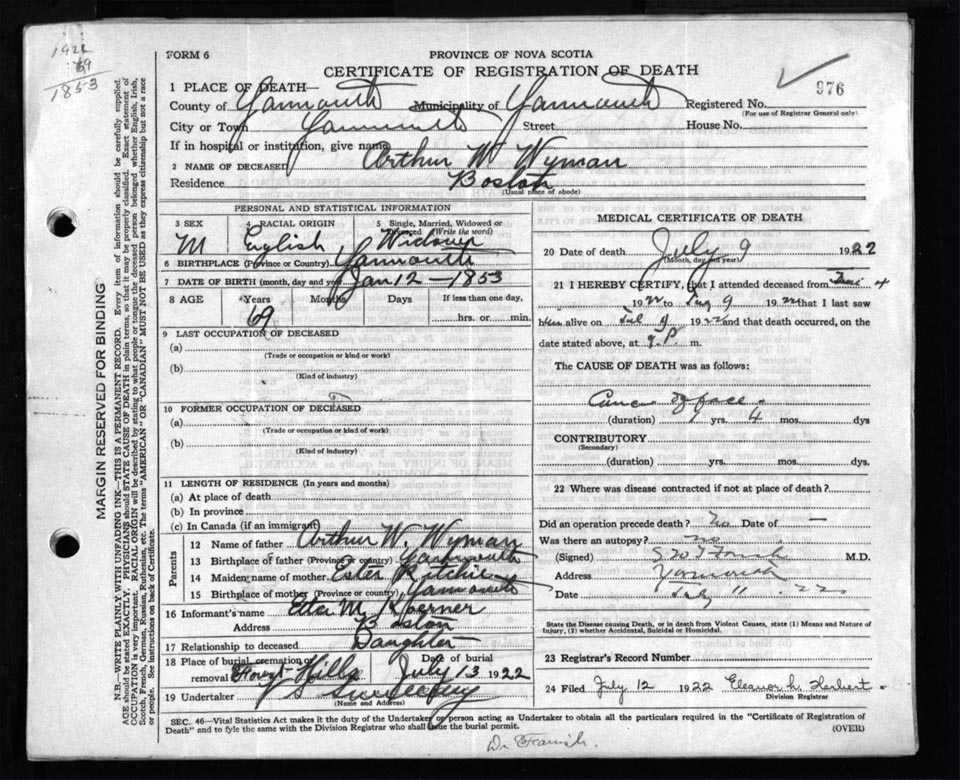 1922
69
1853
FORM 6
PROVINCE OF NOVA SCOTIA
CERTIFICATE OF REGISTRATION OF DEATH
976
1 PLACE OF DEATH—
County of Yarmouth Municipality of Yarmouth Registered No.
(For use of Registrar General only)
City or Town Yarmouth Street House No.
If in hospital or institution, give name
2 NAME OF DECEASED Arthur W Wyman
Residence Boston
(Usual place of abode)
PERSONAL AND STATISTICAL INFORMATION
3 SEX M
4 RACIAL ORIGIN English
5 Single, Married, Widowed or Divorced (Write the word) Widower
6 BIRTHPLACE (Province or Country) Yarmouth
7 DATE OF BIRTH (month, day and year) Jan 12 — 1853
8 AGE Years Months Days If less than one day,
69 hrs. or min.
9 LAST OCCUPATION OF DECEASED
(a)
(Trade or occupation or kind or work)
(b)
(Kind of industry)
10 FORMER OCCUPATION OF DECEASED
(a)
(Trade or occupation or kind of work)
(b)
(Kind of industry)
11 LENGTH OF RESIDENCE (In years and months)
(a) At place of death
(b) In province
(c) In Canada (if an immigrant)
Parents
12 Name of father Arthur W. Wyman
13 Birthplace of father (Province or country) Yarmouth
14 Maiden name of mother Ester Ritchie
15 Birthplace of mother (Province or country) Yarmouth
16 Informant's name M. Koerner
Address Boston
17 Relationship to deceased Daughter
18 Place of burial, cremation or removal Forest Hills Date of burial July 13 1922
19 Undertaker
(Name and Address)
MEDICAL CERTIFICATE OF DEATH
20 Date of death July 9 1922
(Month, day and year)
21 I HEREBY CERTIFY, that I attended deceased from
1922 to 9 1922 that I last saw
him alive on Jul 9 1922 and that death occurred, on
date stated above, at 9 P. m.
The CAUSE OF DEATH was as follows:
Cancer of face.
(duration) yrs. 4 mos. dys
CONTRIBUTORY
(Secondary)
(duration) yrs. mos. dys.
22 Where was disease contracted if not at place of death?
Did an operation precede death? No Date of —
Was there an autopsy? no
(Signed) M.D.
Address Yarmouth
Date July 11 . 22
State the Disease causing Death, or in death from Violent Causes, state (1) Means and Nature of Injury, (2) whether Accidental, Suicidal or Homicidal.
23 Registrar's Record Number
24 Filed July 12 1922 Eleanor L. Herbert
Division Registrar
SEC. 46—Vital Statistics Act makes it the duty of the Undertaker or person acting as Undertaker to obtain all the particulars required in the "Certificate of Registration of
Death" and to fyle the same with the Division Registrar who shall issue the burial permit.
(OVER)
MARGIN RESERVED FOR BINDING
N.B.—WRITE PLAINLY WITH UNFADING INK—THIS IS A PERMANENT RECORD. Every item of information should be carefully supplied.
AGE should be stated EXACTLY. PHYSICIANS should STATE CAUSE OF DEATH in plain terms, so that it may be properly classified. Exact statement of
OCCUPATION is very important. RACIAL ORIGIN will be described by stating to what people or tongue the deceased person belonged whether English, Irish,
Scotch, French, German, Russian, Ruthenian, etc. The terms "AMERICAN" OR "CANADIAN" MUST NOT BE USED as they express citizenship but not a race
or people. See instructions on back of Certificate.